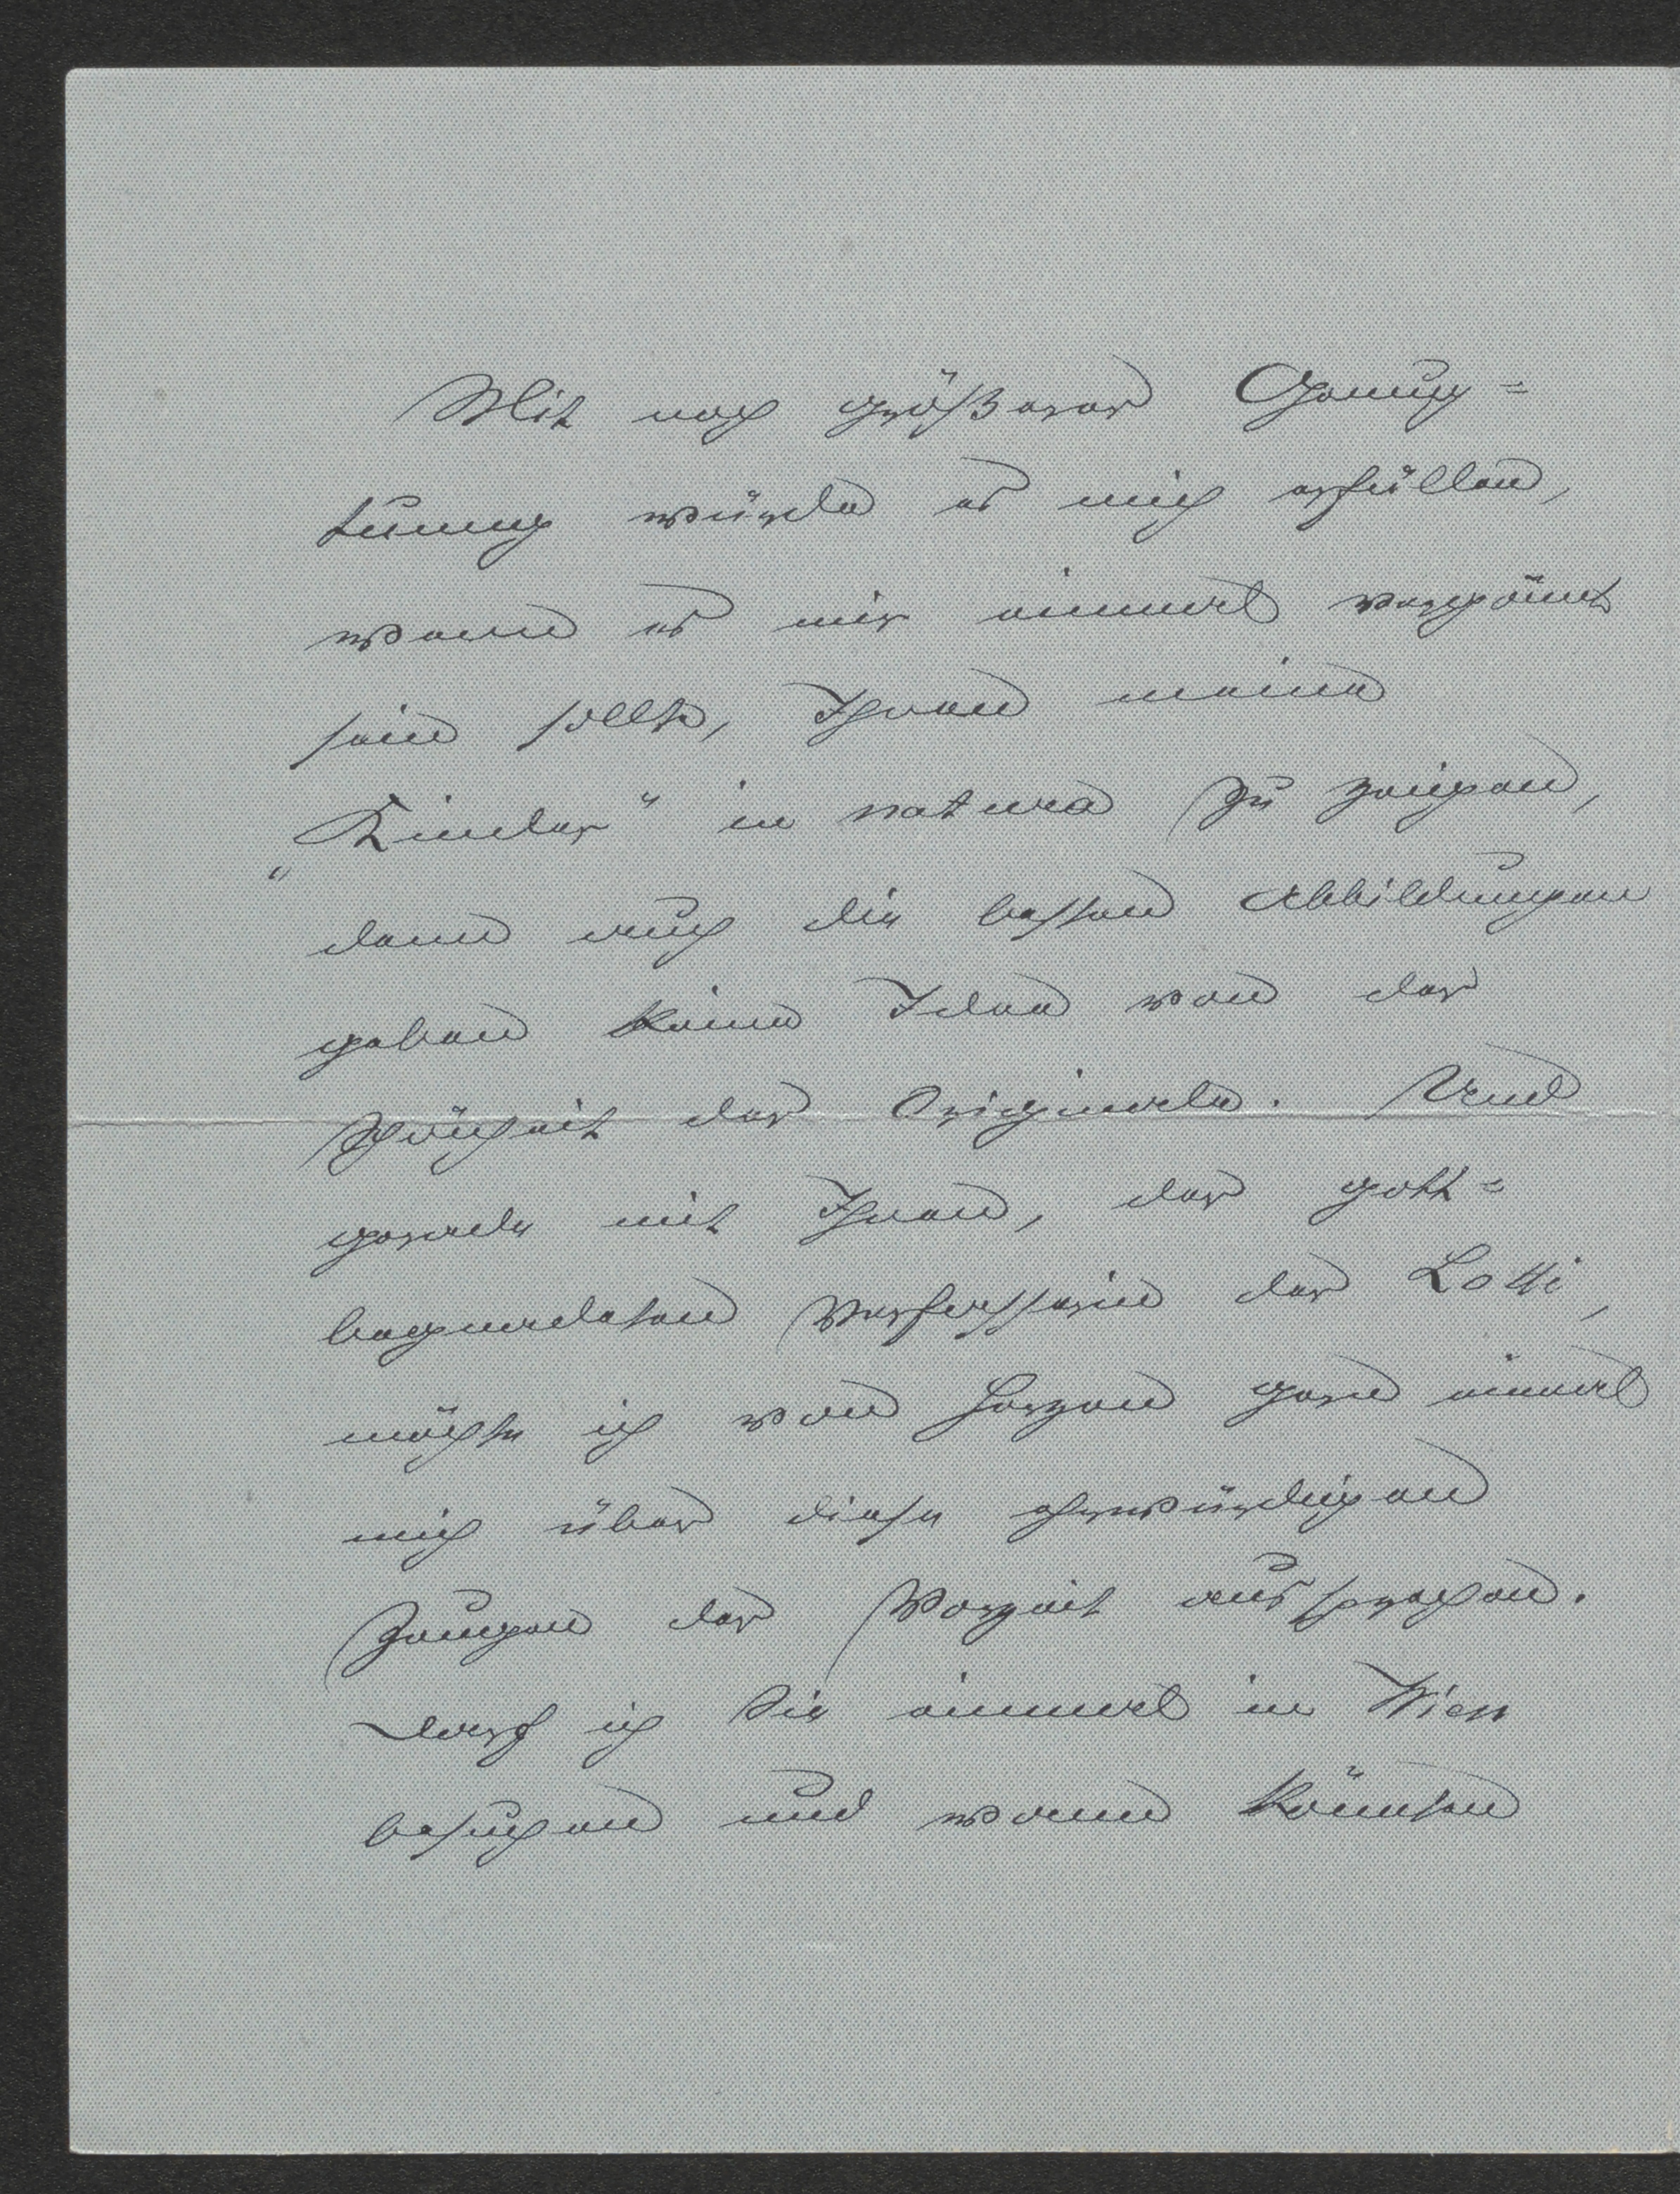 Mit noch größerer Genug=
tuung würde es mich erfüllen,
wenn es mir einmal vergönnt
sein sollte, Ihnen meine
„Kinder“ in natura zu zeigen,
denn auch die besten Abbildungen
geben keine Idee von der
Schönheit der Originale. Und
gerade mit Ihnen, der gott=
begnadeten Verfasserin der Lotti,
möchte ich von Herzen gern einmal
mich über diese ehrwürdigen
Zeugen der Vorzeit aussprechen.
Darf ich Sie einmal in Wien
besuchen und wann könnten